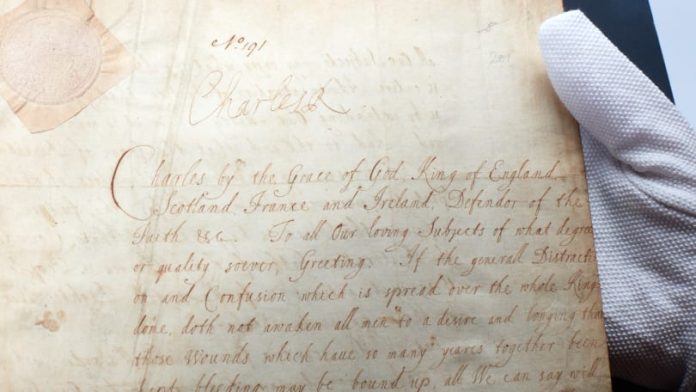 No 191
Charles R
Charles by the Grace of God, King of England,
Scotland, France and Ireland, Defendor of the
Faith &c. To all Our loving Subjects of what degree
or quality soever, Greeting. If the general Distracti-
on and Confusion which is spread over the whole King-
dome, doth not awaken all men to a desire and longing that
those Wounds which have so many yeares together been
kept bleeding may be bound up, all We can say will